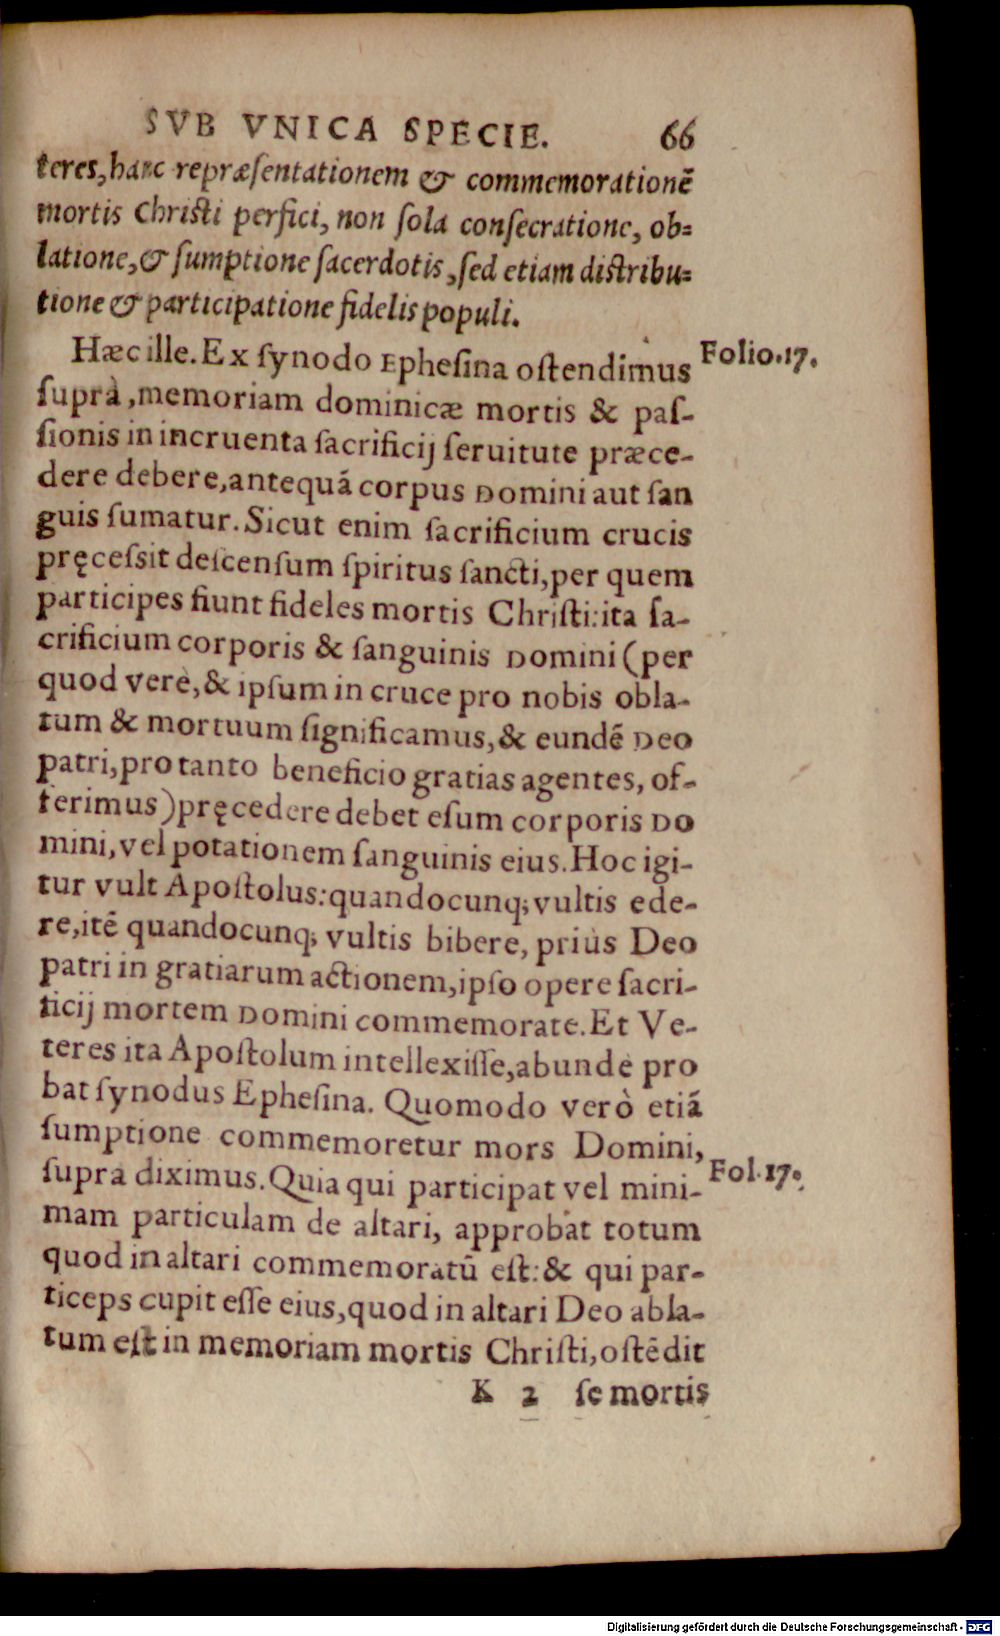 SVB VNICA SPECIE. 66
teres, hanc repræſentationem & commemorationē
mortis Chriſti perfici, non ſola conſecratione, ob=
latione, & ſumptione ſacerdotis, ſed etiam diſtribu=
tione & participatione fidelis populi.
Hæc ille. Ex ſynodo Epheſina oſtendimus
Folio. 17.
ſuprà, memoriam dominicæ mortis & paſ-
ſionis in incruenta ſacrificij ſeruitute præce-
dere debere, antequā corpus Domini aut ſan
guis ſumatur. Sicut enim ſacrificium crucis
pręceſsit deſcenſum ſpiritus ſancti, per quem
participes fiunt fideles mortis Chriſti: ita ſa-
crificium corporis & ſanguinis Domini (per
quod verè, & ipſum in cruce pro nobis obla-
tum & mortuum ſignificamus, & eundē Deo
patri, pro tanto beneficio gratias agentes, of-
ferimus) pręcedere debet eſum corporis Do
mini, vel potationem ſanguinis eius. Hoc igi-
tur vult Apoſtolus: quandocunq; vultis ede-
re, itē quandocunq; vultis bibere, priùs Deo
patri in gratiarum actionem, ipſo opere ſacri-
ficij mortem Domini commemorate. Et Ve-
teres ita Apoſtolum intellexiſſe, abundè pro
bat ſynodus Epheſina. Quomodo verò etiā
ſumptione commemoretur mors Domini,
ſupra diximus. Quia qui participat vel mini-
Fol. 17.
mam particulam de altari, approbat totum
quod in altari commemoratū eſt: & qui par-
ticeps cupit eſſe eius, quod in altari Deo abla-
tum eſt in memoriam mortis Chriſti, oſtēdit
K 2 ſe mortis
Digitalisierung gefördert durch die Deutsche Forschungsgemeinschaft - DFG